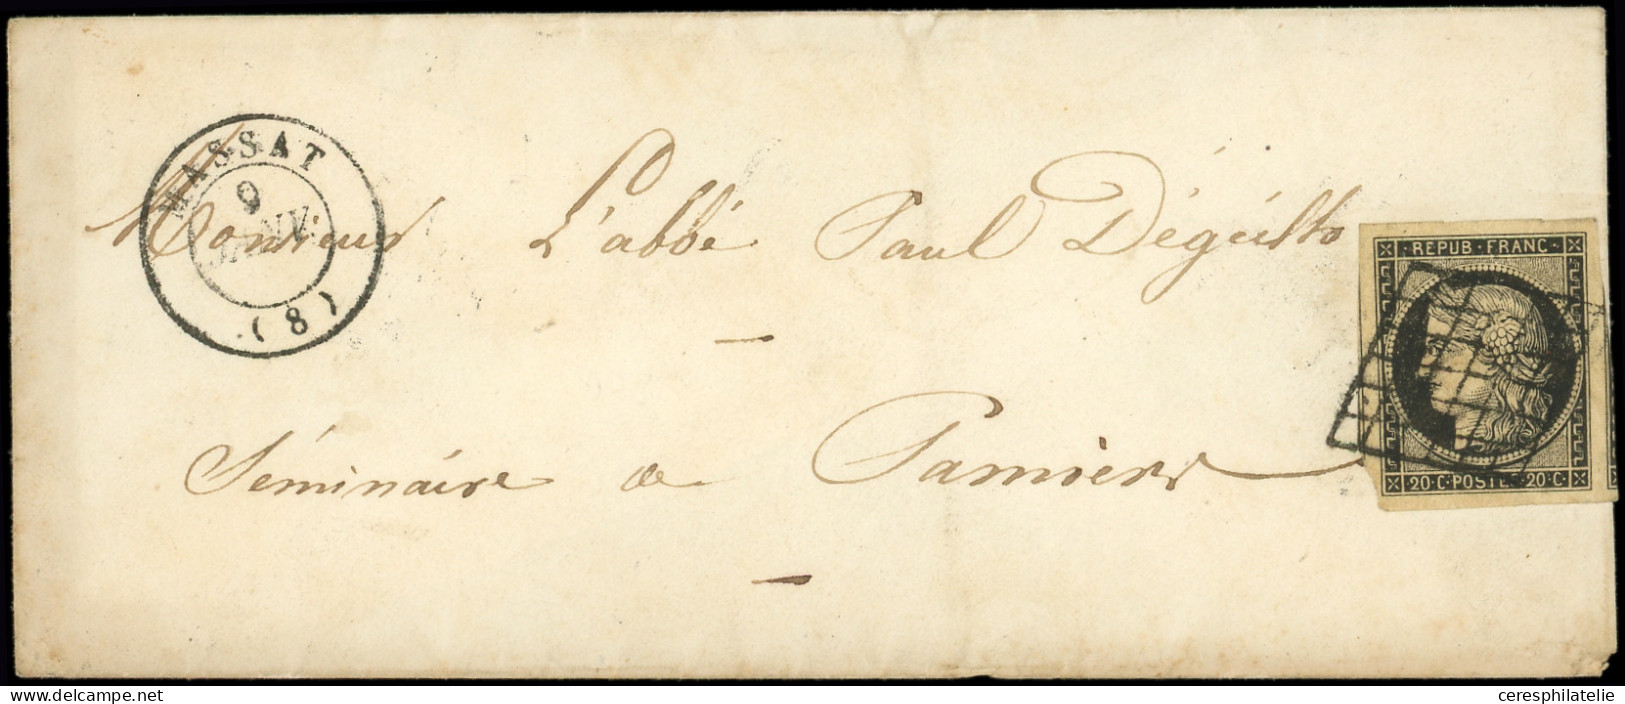 MASSAT
9
JANV.
(8)
Monsieur L'abbé Paul Déguilho
Séminaire de Pamiers
REPUB·FRANC·
20·C·POSTES·20·C·
www.delcampe.net
ceresphilatelie